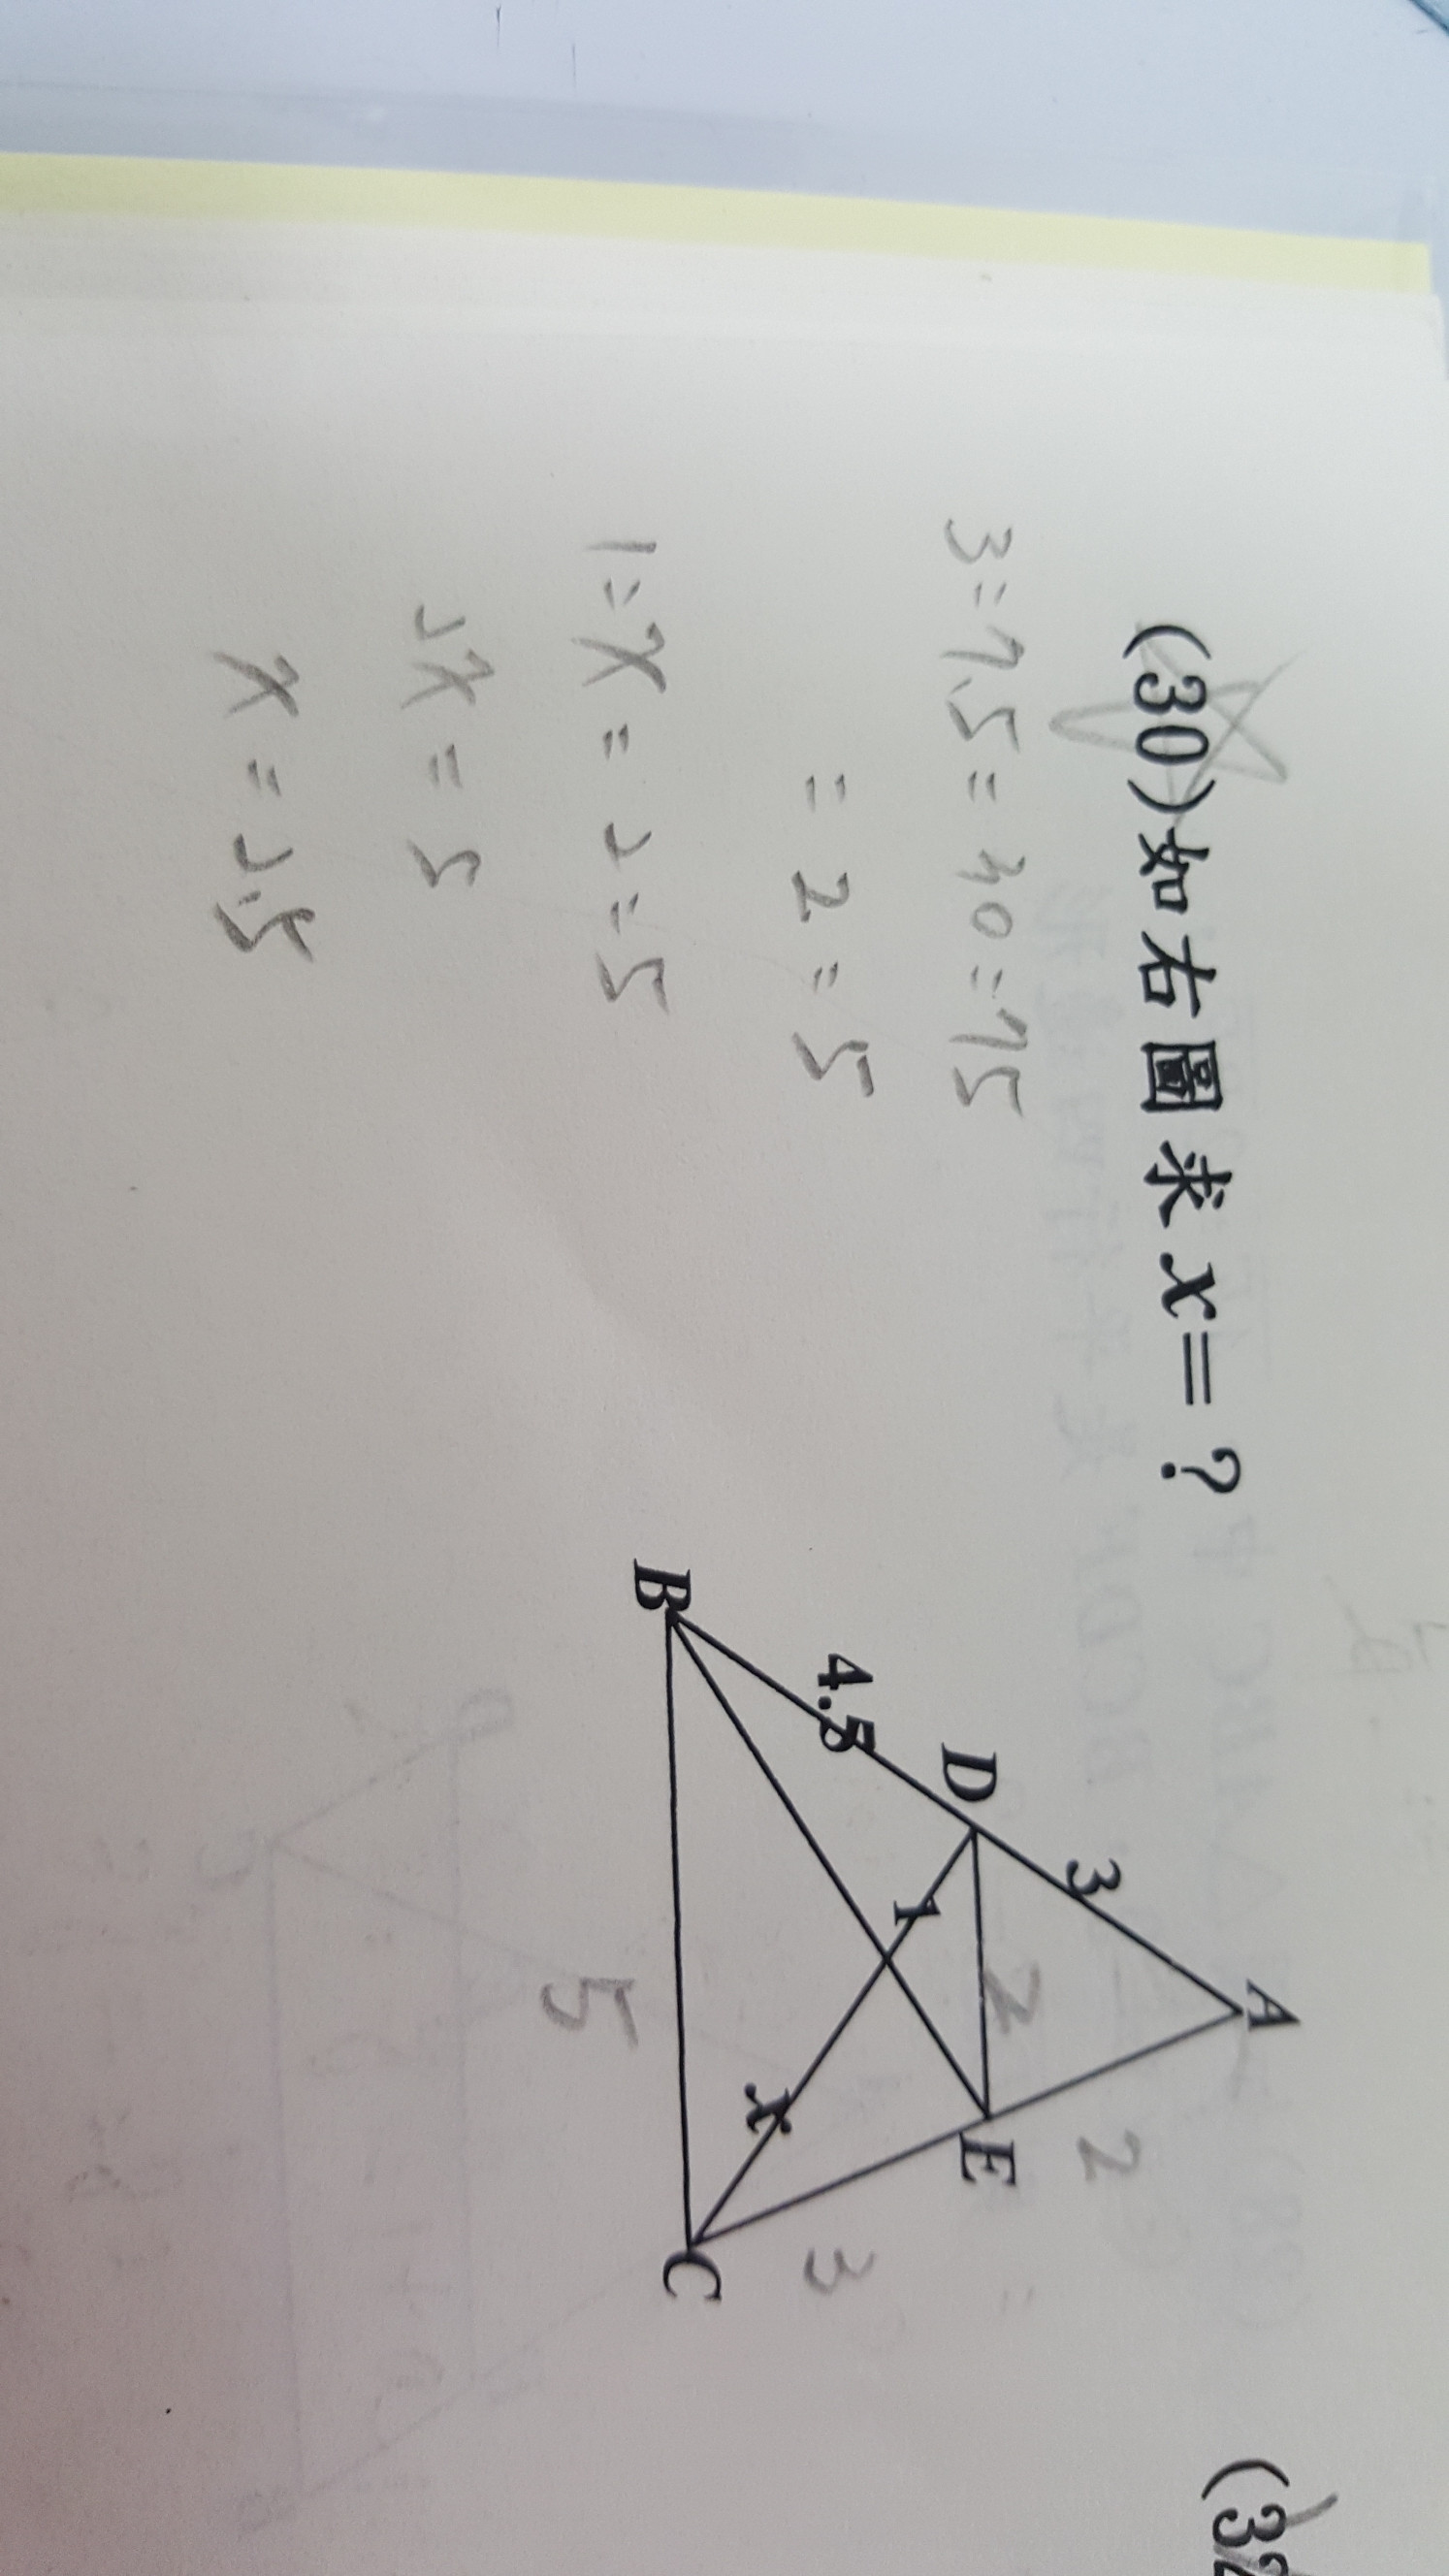 (30)如右圖求x=？
3:7.5=30:75
=2:5
1:x=2:5
2x=5
x=2.5
A
3
2
D
2
E
4.5
1
3
x
B
C
5
(32